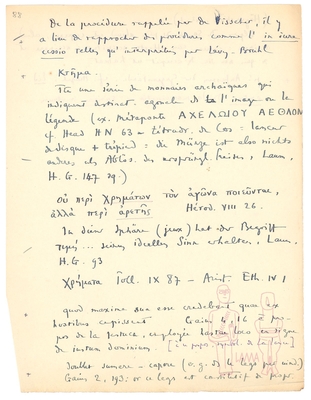 88
De la procédure rappelée par de Visscher, il y
a lieu de rapprocher des procédures comme l'in iure
cessio telles qu'interprétées par Lévy-Bruhl.
Κτῆμα.
une série de monnaies archaïques qui
indiquent distinct. à l'image ou la
légende (ex. Métaponte ΑΧΕΛΩΙΟΥ ΑΕΘΛΟΝ
cf Head HN 63 – tétradr. de Cos = lanceur
de disque + trépied = die Münze ist also nichts
anderes als Abbs. des ursprüngl. Preises, Laum,
H. G. 147 sq.)
οὐ περὶ χρημάτων τὸν ἀγῶνα ποιεῦνται,
ἀλλὰ περὶ ἀρετῆς Hérod. VIII 26.
In dieser Sphäre (jeux) hat der Begriff
τιμή... seinen ideellen Sinn erhalten, Laum,
H. G. 93
Χρήματα Poll. IX 87 – Arist. Eth. IV 1
quod maxime sua esse credebant quae ex
hostibus cepissent Gaius 4, 16 à pro-
pos de la festuca, employée hastae loco
de iustum dominium.
sumere – capere (o. g. d. le legs per vind.)
Gaius 2, 193; or ce legs est constitutif de propr.